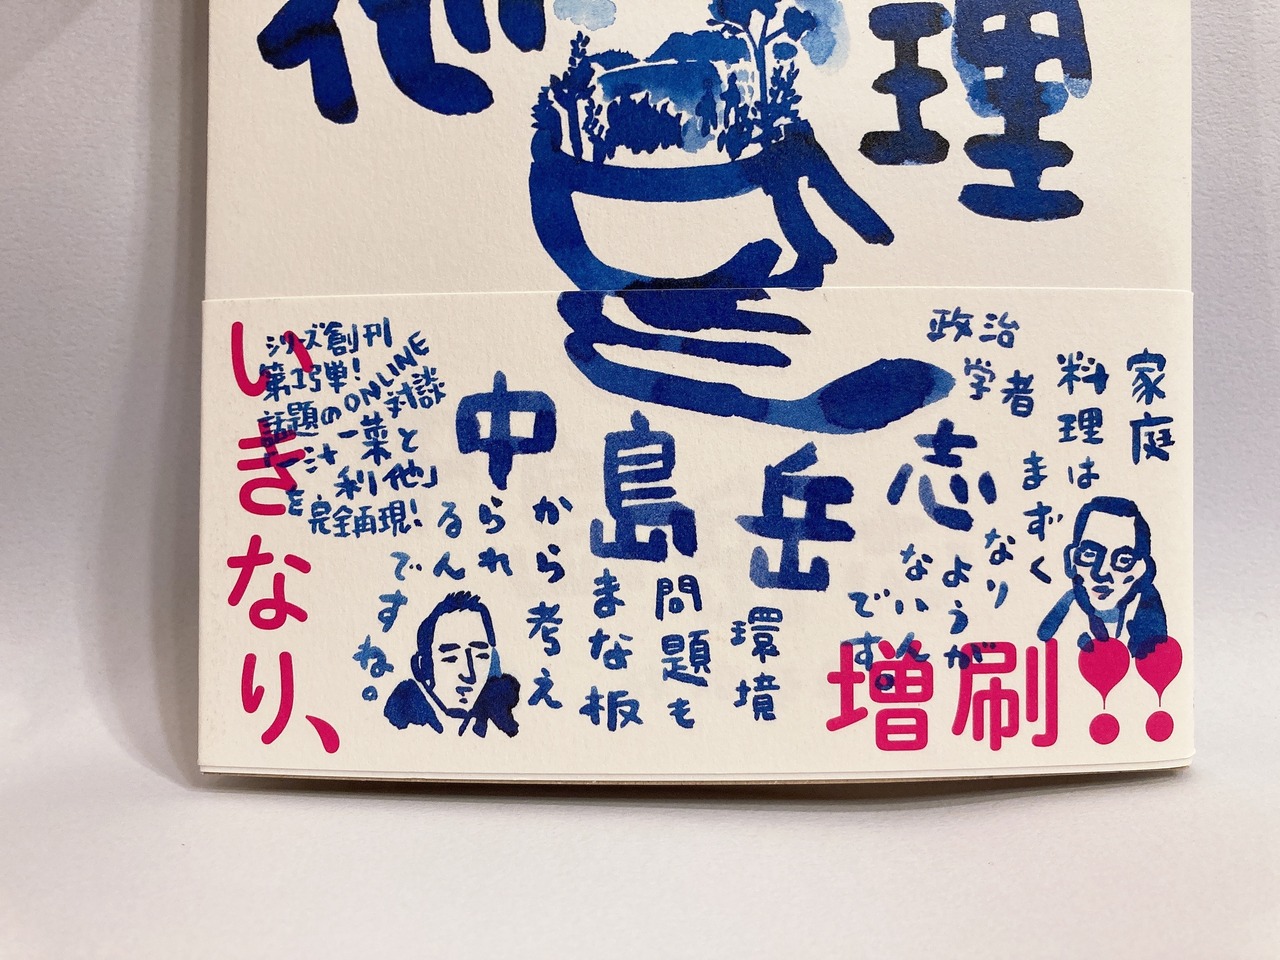 理
他
家庭
料理は
まずく
なり
ようが
ないん
です。
政治
学者
中島岳志
環境
問題も
まな板
から考え
られ
るん
ですね。
シリーズ創刊
第1弾!
話題のONLINE対談
「一汁一菜と
利他」
を完全再現!
いきなり、
増刷!!